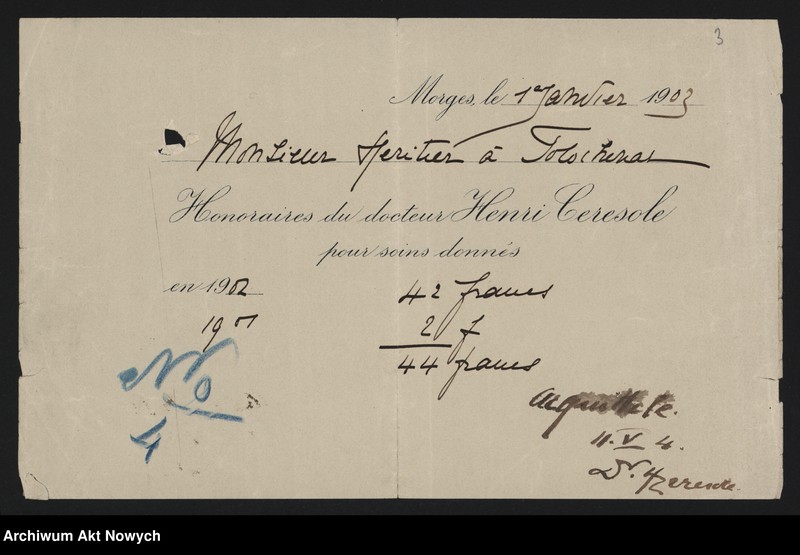 3
Morges, le 1er Janvier 1903
Monsieur Heritier à Tolochenaz
Honoraires du docteur Henri Ceresole
pour soins donnés
en 1902 42 francs
1901 2 f
44 francs
No
4
Acquitté le.
11.V 4.
Dr. HCeresole.
Archiwum Akt Nowych